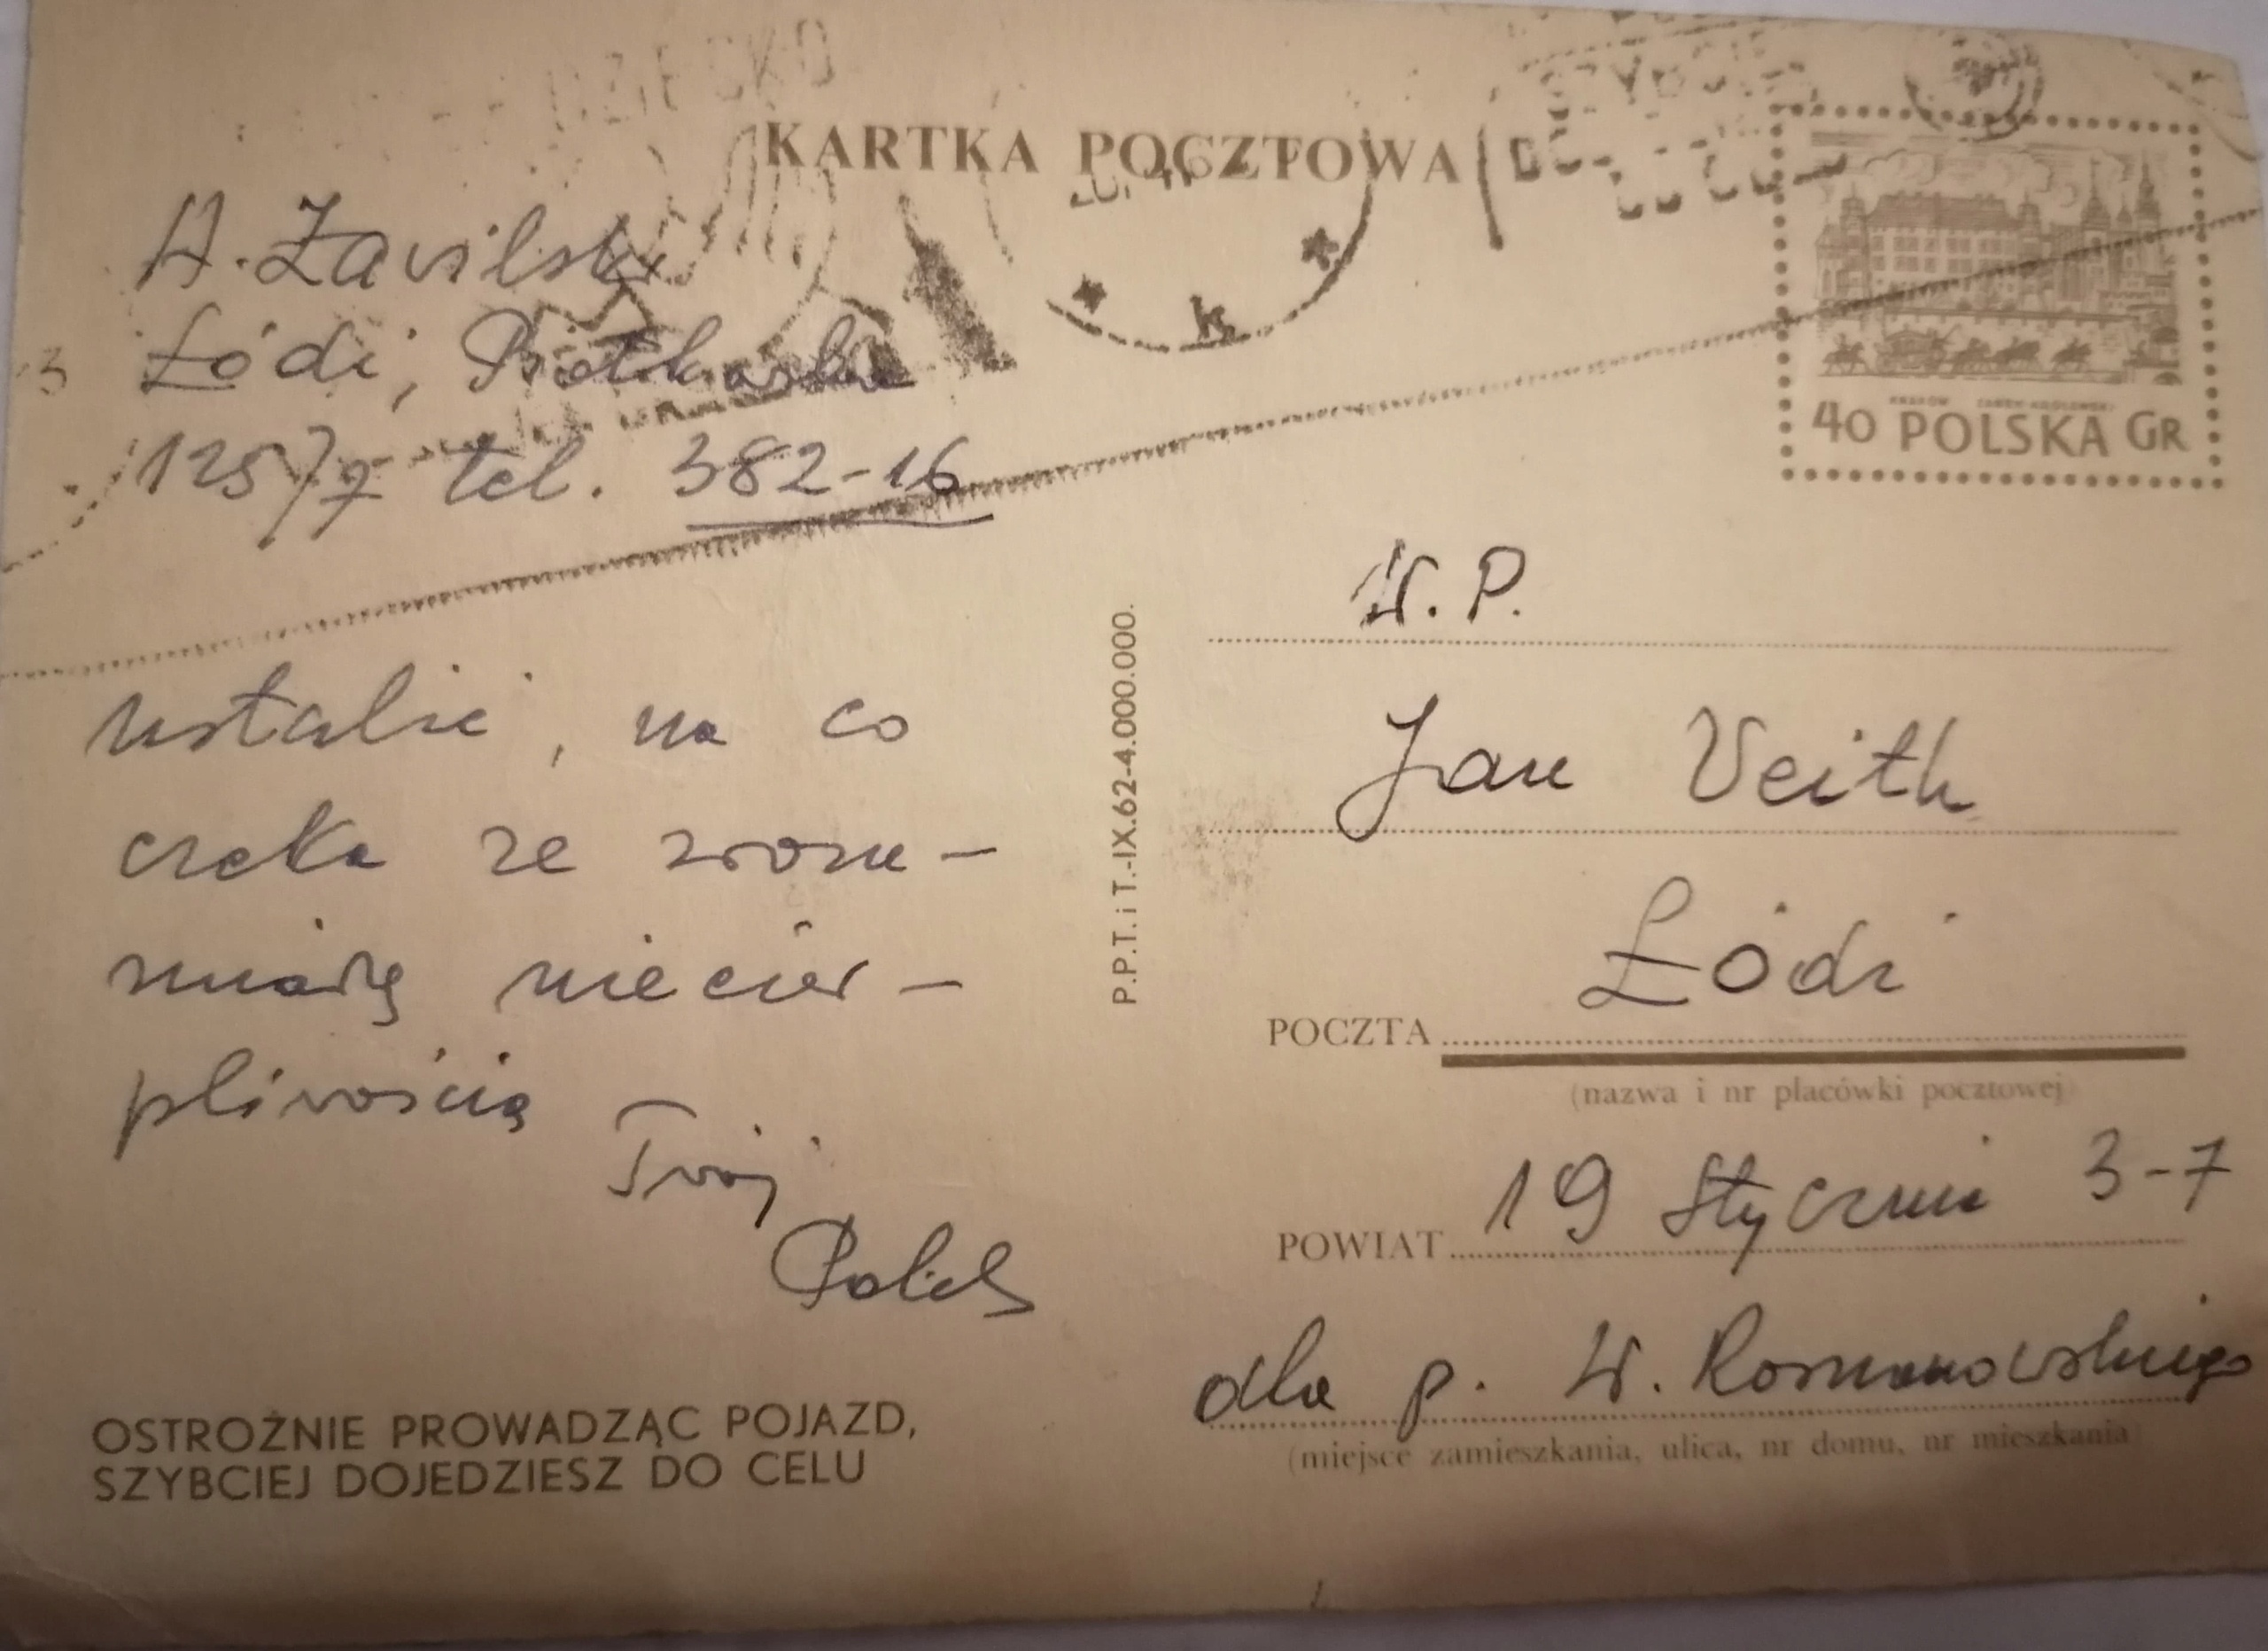 DZIECKO
KARTKA POCZTOWA
A. Zawilski
Łódź, Piotrkowska
125/7 tel. 382-16
ustalić, na co
czeka ze zrozu-
miałą niecier-
pliwością
Twój
OSTROŻNIE PROWADZĄC POJAZD,
SZYBCIEJ DOJEDZIESZ DO CELU
P.P.T. i T.-IX.62-4.000.000.
KRAKÓW ZAMEK KRÓLEWSKI
40 POLSKA GR
W. P.
Jan Veith
Łódź
POCZTA
(nazwa i nr placówki pocztowej)
POWIAT 19 Stycznia 3-7
dla p. W. Romanowskiego
(miejsce zamieszkania, ulica, nr domu, nr mieszkania)